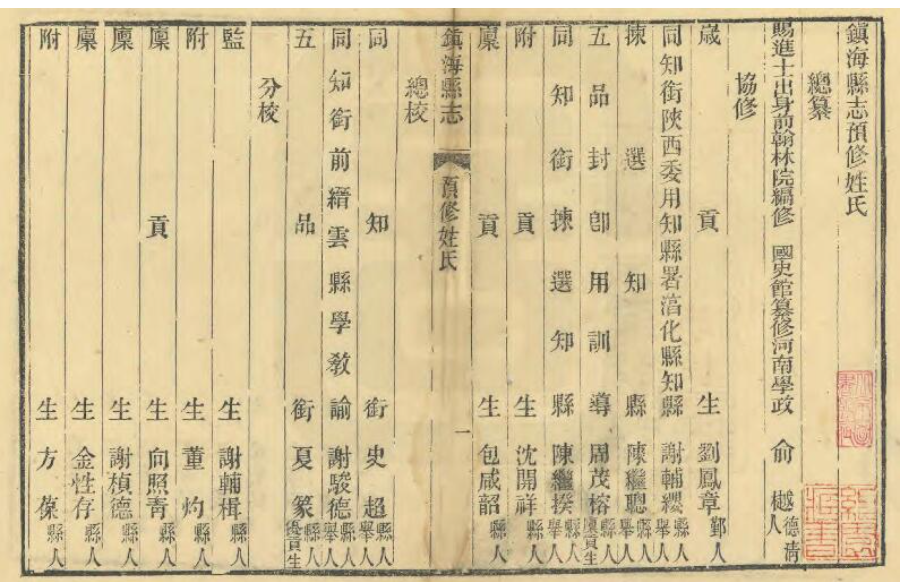 鎮海縣志預修姓氏
總纂
賜進士出身前翰林院編修 國史館纂修河南學政 俞樾 德清人
協修
歲貢生 劉鳳章 鄞人
同知銜陝西委用知縣署淳化縣知縣 謝輔纓 縣人舉人
揀選知縣 陳繼聰 縣人舉人
五品封卽用訓導 周茂榕 縣人優貢生
同知銜揀選知縣 陳繼揆 縣人舉人
附貢生 沈開祥 縣人
廩貢生 包咸韶 縣人
鎮海縣志 預修姓氏 一
總校
同知銜 史超 縣人舉人
同知銜前縉雲縣學教諭 謝駿德 縣人舉人
五品銜 夏篆 縣人優貢生
分校
監生 謝輔楫 縣人
附生 董灼 縣人
廩貢生 向照靑 縣人
廩生 謝楨德 縣人
廩生 金性存 縣人
附生 方葆 縣人